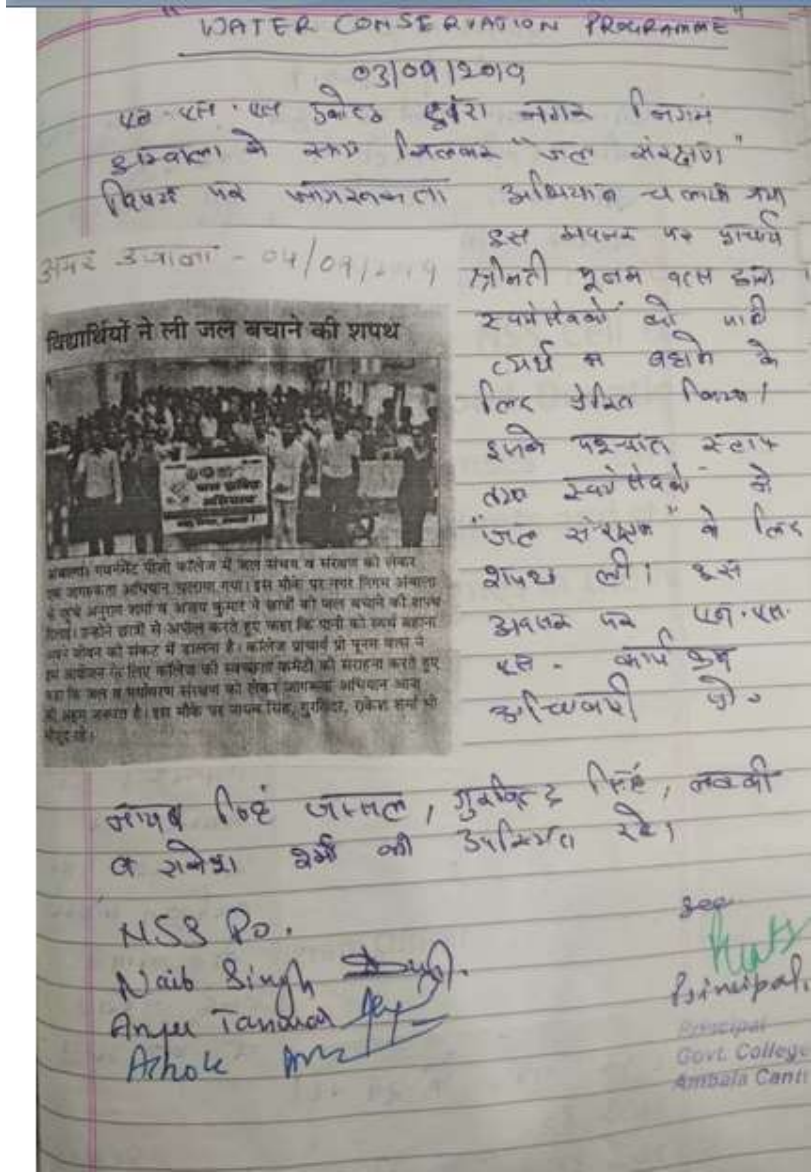 "WATER CONSERVATION PROGRAMME"
03/09/2019
एन.एस.एस द्वारा नगर निगम
अम्बाला के साथ मिलकर "जल संरक्षण"
विषय पर जागरूकता अभियान चलाया गया
इस अवसर पर प्राचार्य
श्रीमती पूनम वत्स द्वारा
स्वयंसेवकों को पानी
व्यर्थ न बहाने के
लिए प्रेरित किया।
इसके पश्चात स्टाफ
तथा स्वयंसेवकों ने
"जल संरक्षण" के लिए
शपथ ली। इस
अवसर पर एन.एस.
एस. कार्यक्रम
अधिकारी प्रो॰
अमर उजाला - 04/09/2019
विद्यार्थियों ने ली जल बचाने की शपथ
जल शक्ति
अभियान
अंबाला। गवर्नमेंट पीजी कॉलेज में जल संचय व संरक्षण को लेकर
एक जागरूकता अभियान चलाया गया। इस मौके पर नगर निगम अंबाला
से अनुराग शर्मा व अजय कुमार ने छात्रों को जल बचाने की शपथ
दिलाई। उन्होंने छात्रों से अपील करते हुए कहा कि पानी को व्यर्थ बहाना
अपने जीवन को संकट में डालना है। कॉलेज प्राचार्य प्रो पूनम वत्स ने
इस आयोजन के लिए कॉलेज की स्वच्छता कमेटी की सराहना करते हुए
कहा कि जल व पर्यावरण संरक्षण को लेकर जागरूकता अभियान आज
की अहम जरूरत है। इस मौके पर नायब सिंह, गुरविंदर, राकेश शर्मा भी
मौजूद रहे।
नायब सिंह जास्सल, गुरविन्द्र सिंह,
व राकेश शर्मा की उपस्थित रहे।
NSS PO.
Naib Singh
Anju Tanwar
Ashok
Principal
Principal
Govt. College
Ambala Cantt